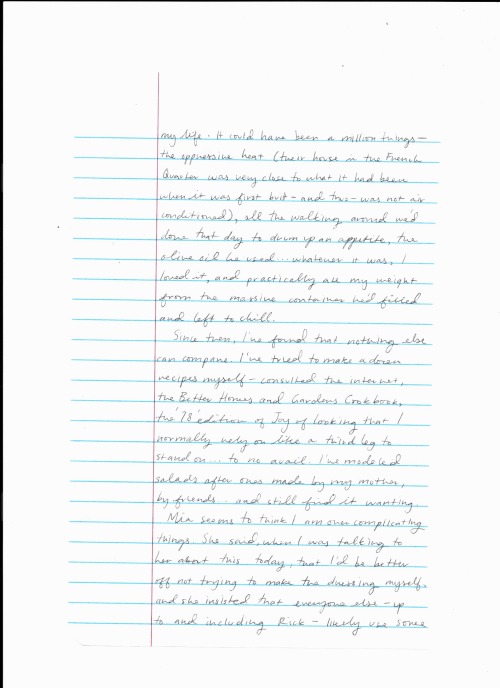 my life. It could have been a million things —
the oppressive heat (their house in the French
Quarter was very close to what it had been
when it was first built - and thus - was not air
conditioned), all the walking around we'd
done that day to drum up an appetite, the
olive oil he used... whatever it was, I
loved it, and practically ate my weight
from the massive container he'd filled
and left to chill.
Since then, I've found that nothing else
can compare. I've tried to make a dozen
recipes myself - consulted the internet,
the Better Homes and Gardens Cookbook,
the '78 edition of Joy of Cooking that I
normally rely on like a third leg to
stand on... to no avail. I've modeled
salads after ones made by my mother,
by friends.. and still find it wanting
Mia seems to think I am over complicating
things. She said, when I was talking to
her about this today, that I'd be better
off not trying to make the dressing myself.
and she insisted that everyone else - up
to and including Rick - likely use some